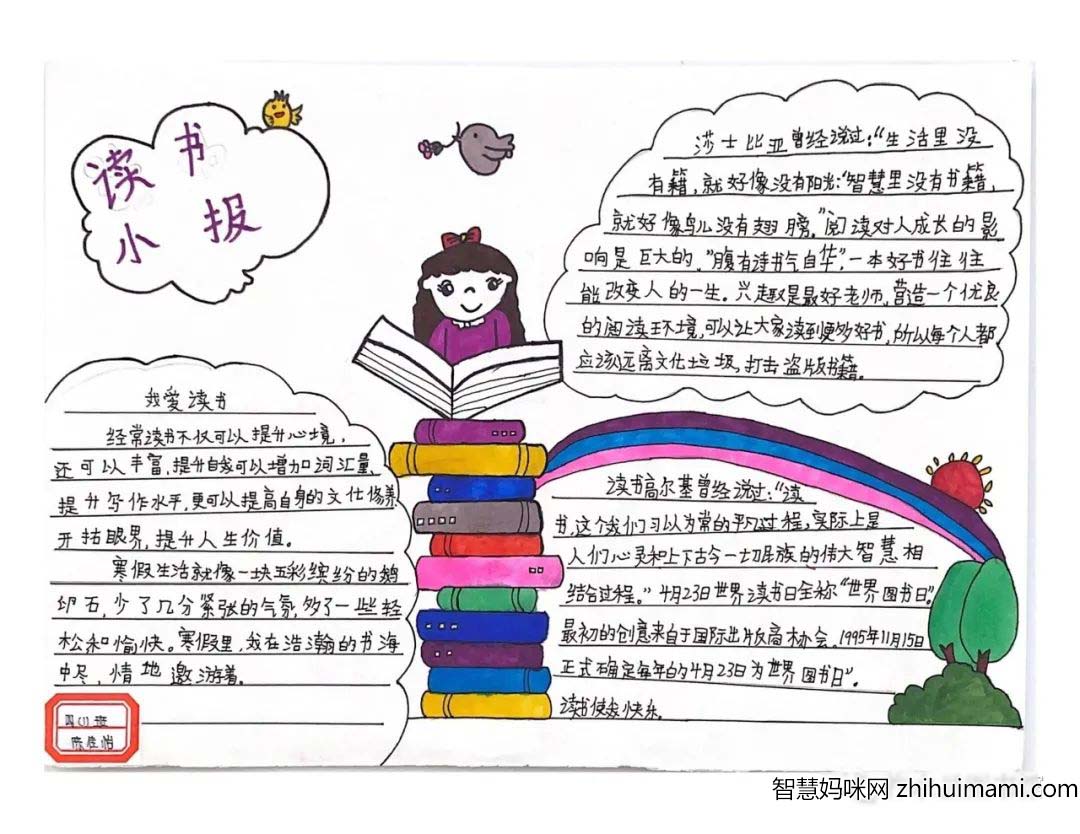 读书
小报
莎士比亚曾经说过：“生活里没
有籍，就好像没有阳光；智慧里没有书籍，
就好像鸟儿没有翅膀。”阅读对人成长的影
响是巨大的，“腹有诗书气自华”，一本好书往往
能改变人的一生。兴趣是最好老师，营造一个优良
的阅读环境，可以让大家读到更多好书，所以每个人都
应该远离文化垃圾，打击盗版书籍。
我爱读书
经常读书不仅可以提升心境，
还可以丰富，提升自我可以增加词汇量、
提升写作水平，更可以提高自身的文化修养
开拓眼界，提升人生价值。
寒假生活就像一块五彩缤纷的鹅
卵石，少了几分紧张的气氛，多了一些轻
松和愉快。寒假里，我在浩瀚的书海
中尽，情地遨游着。
读书高尔基曾经说过：“读
书，这个我们习以为常的平凡过程，实际上是
人们心灵和上下古今一切民族的伟大智慧相
结合过程。”4月23日世界读书日全称“世界图书日”。
最初的创意来自于国际出版商协会。1995年11月15日
正式确定每年的4月23日为“世界图书日”。
读书使我快乐。
四(1)班
陈佳怡
智慧妈咪网 zhihuimami.com